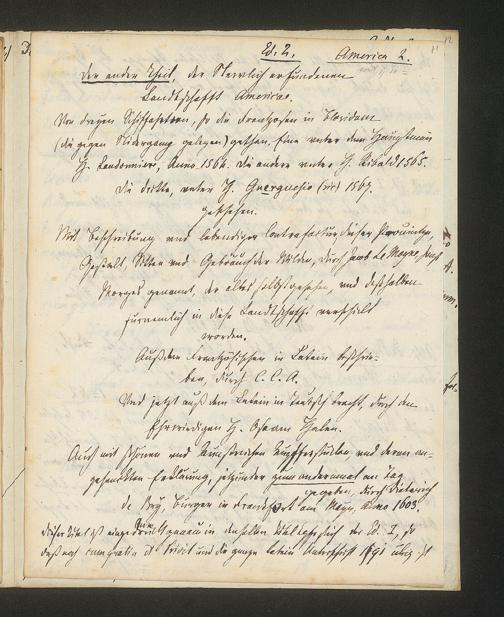 Ed. 2. America 2.
Der ander Theil, der Newlich erfundenen
Landtschafft Americae.
Von dreyen Schiffahrten, so die Frantzosen in Floridam
(die gegen Nidergang gelegen) gethan. Eine unter dem Hauptmann
H. Laudonniere, Anno 1564. Die andere unter H. Ribald 1565.
Die dritte, unter H. Guerguesio (sic) 1567.
geschehen.
Mit Beschreibung und lebendiger Contrafactur dieser Provintze,
Gestalt, Sitten und Gebräuch der Wilden, durch Jacob Le Moyne, sonst
Morgues genannt, der alles selbst gesehen, und desshalben
fürnemlich in diese Landtschafft verschickt
worden.
Auss dem Frantzösischen in Latein beschrie-
ben, durch C. C. A.
Und jetzt auss dem Latein in Teutsch bracht, durch den
Ehrwirdigen H. Oseam Halen.
Auch mit schönen und kunstreichen Kupfferstucken und deren an-
gehenckten Erklärung, jetzunder zum andernmal an Tag
gegeben, durch Dieterich
de Bry, Bürger in Franckfort am Mayn, Anno 1603.
Dieser Titel ist eingedruckt genau in derselben der Ed. I, so
die ganze latein Unterschrift 1591 übrig ist